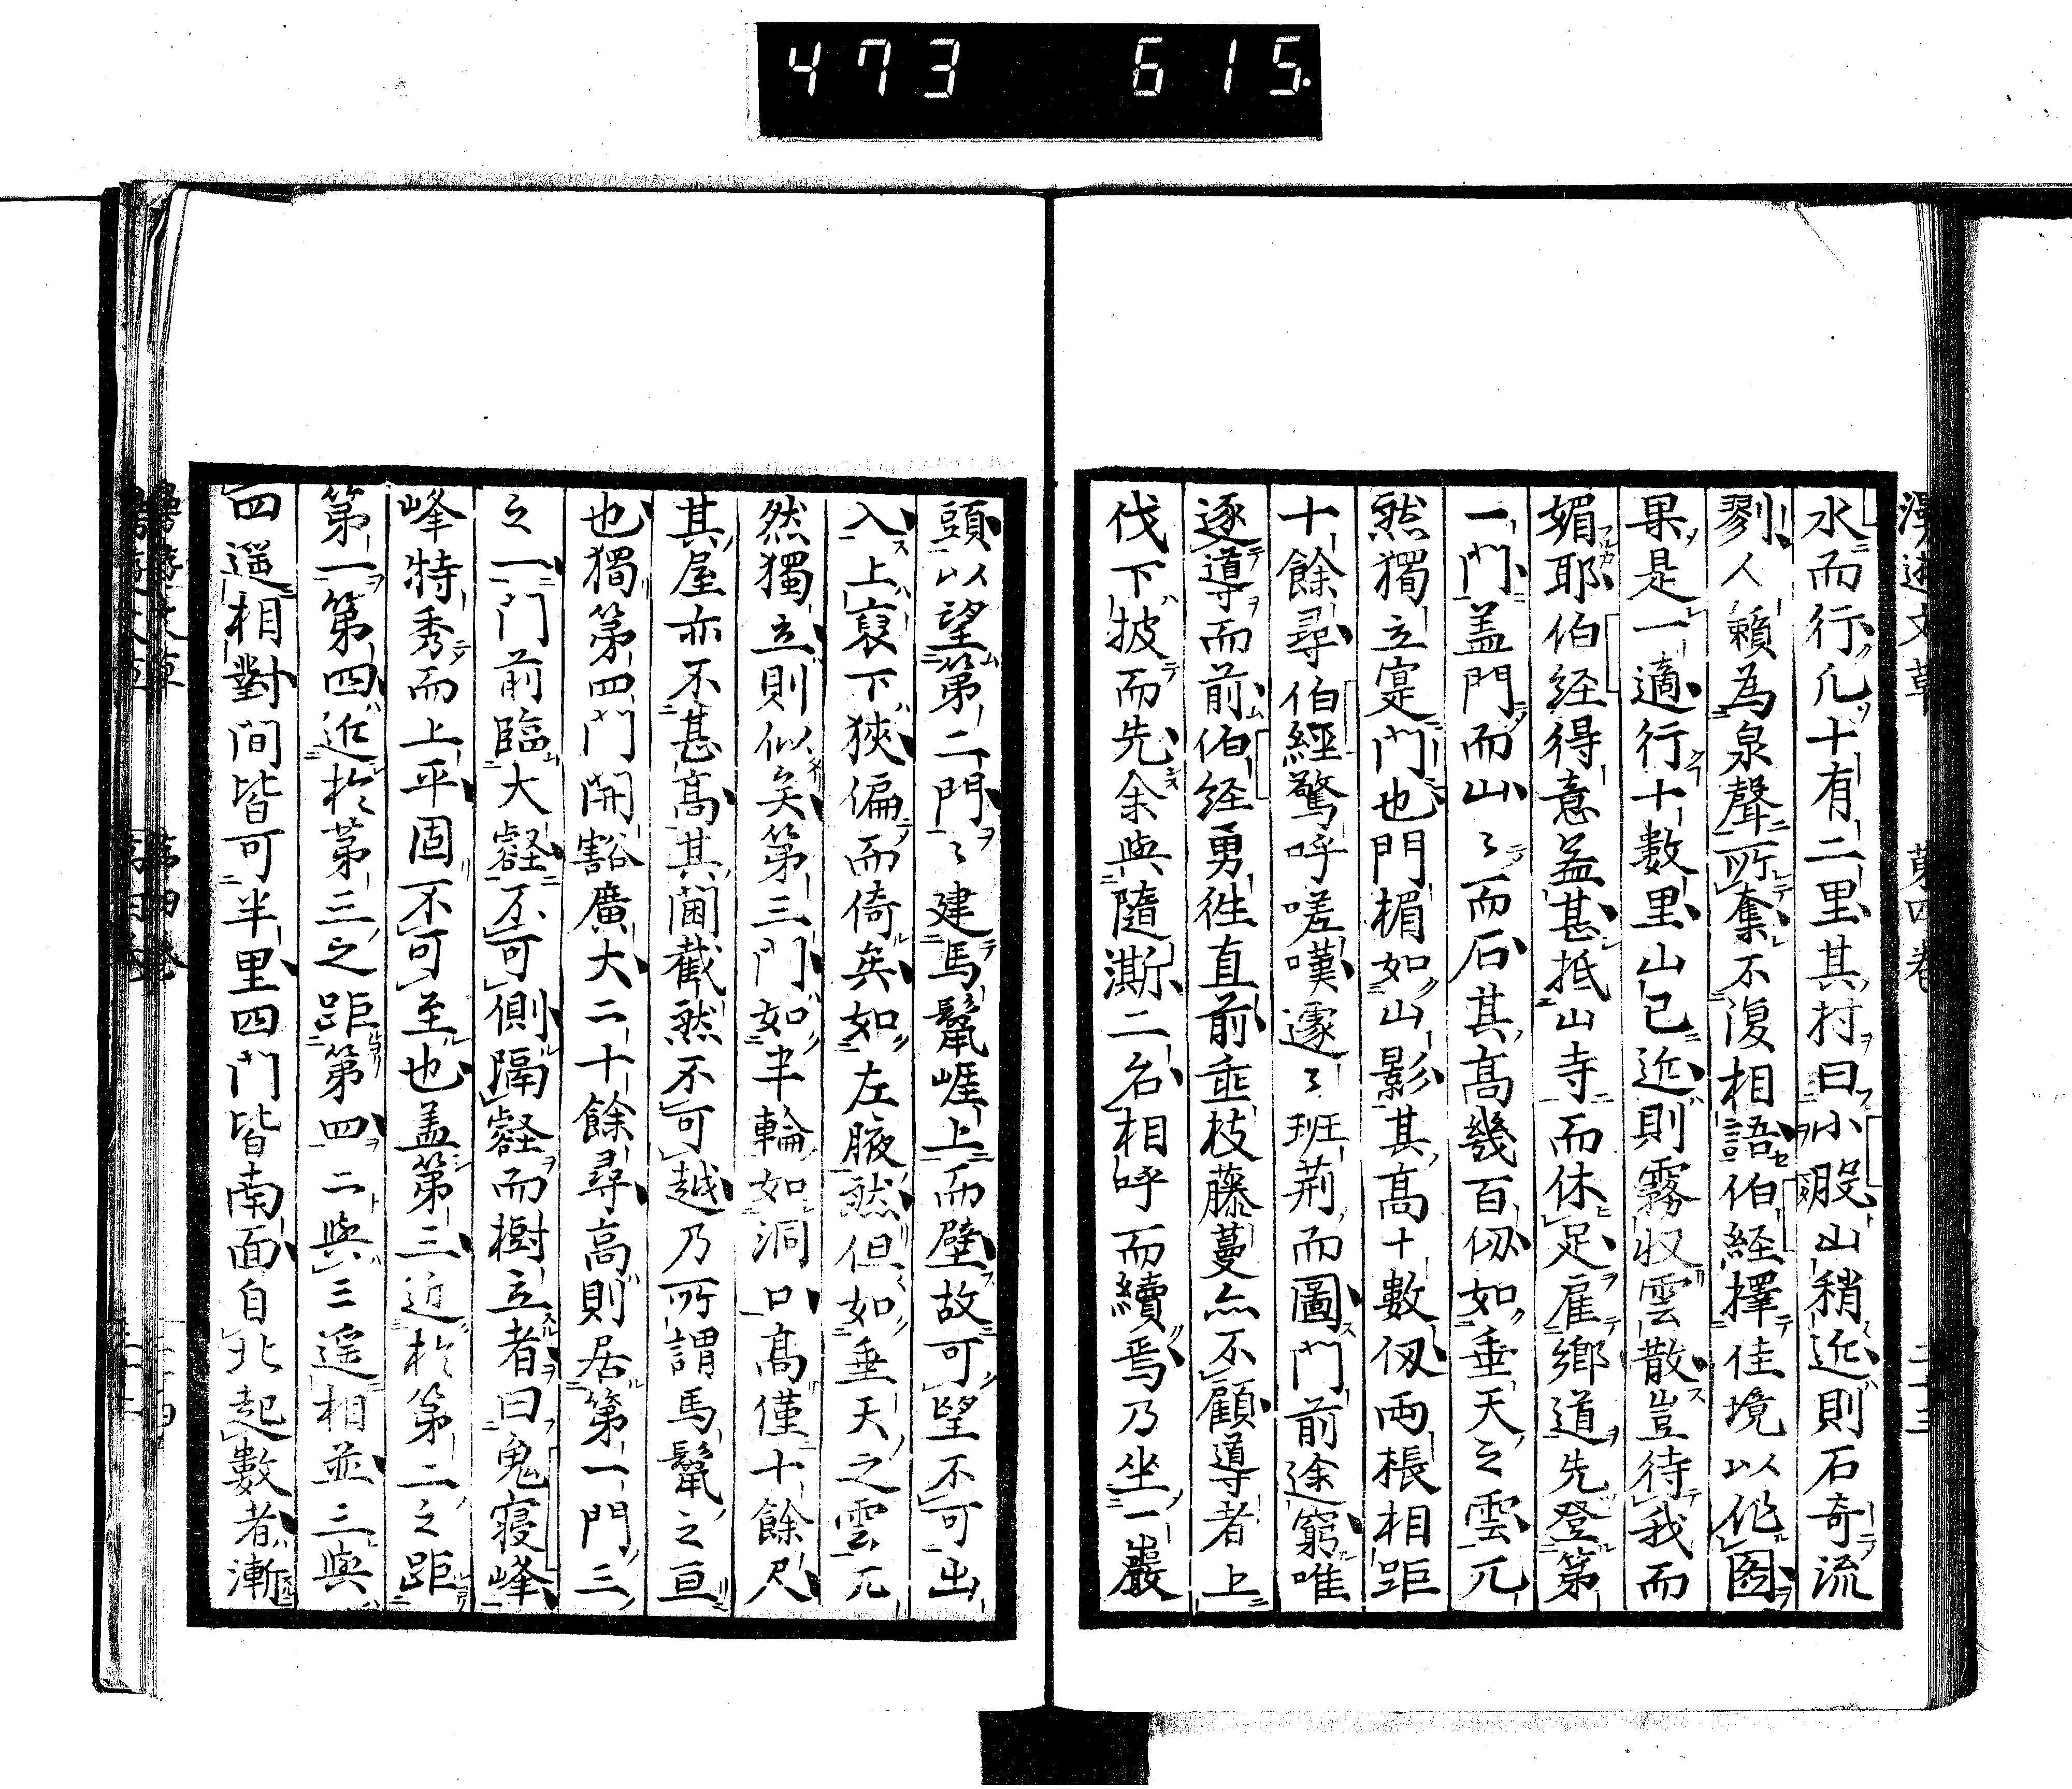 473 615.
漫遊文草 第四卷 二十三
水而行凢十有二里其村曰小腶山稍近則石奇流
劉人籟為泉聲所奪不復相語伯経擇佳境以作圖
果是一適行十數里山已近則霧収雲散豈待我而
媚耶伯経得意益甚抵山寺而休足雇鄉道先登第
一門盖門而山々而石其高幾百仭如垂天之雲兀
然獨立寔門也門楣如山影其高十數仭両棖相距
十餘尋伯經驚呼嗟嘆遽々班荊而圖門前途窮唯
逐導而前伯経勇徃直前垂枝藤蔓亦不顧導者上
伐下披而先余與隨澌二名相呼而續焉乃坐一巖
頭以望第二門々建馬鬣崕上而壁故可望不可出
入上裒下狹偏而倚矣如左腋然但如垂天之雲兀
然獨立則似矣第三門如半輪如洞口高僅十餘尺
其屋亦不甚高其闑截然不可越乃所謂馬鬣之亘
也獨第四門開豁廣大二十餘尋高則居第一門三
之一門前臨大壑不可側隔壑而樹立者曰鬼寝峰
峰特秀而上平固不可至也盖第三近於第二之距
第一第四近於第三之距第四二與三遥相並三與
四遥相對間皆可半里四門皆南面自北起數者漸